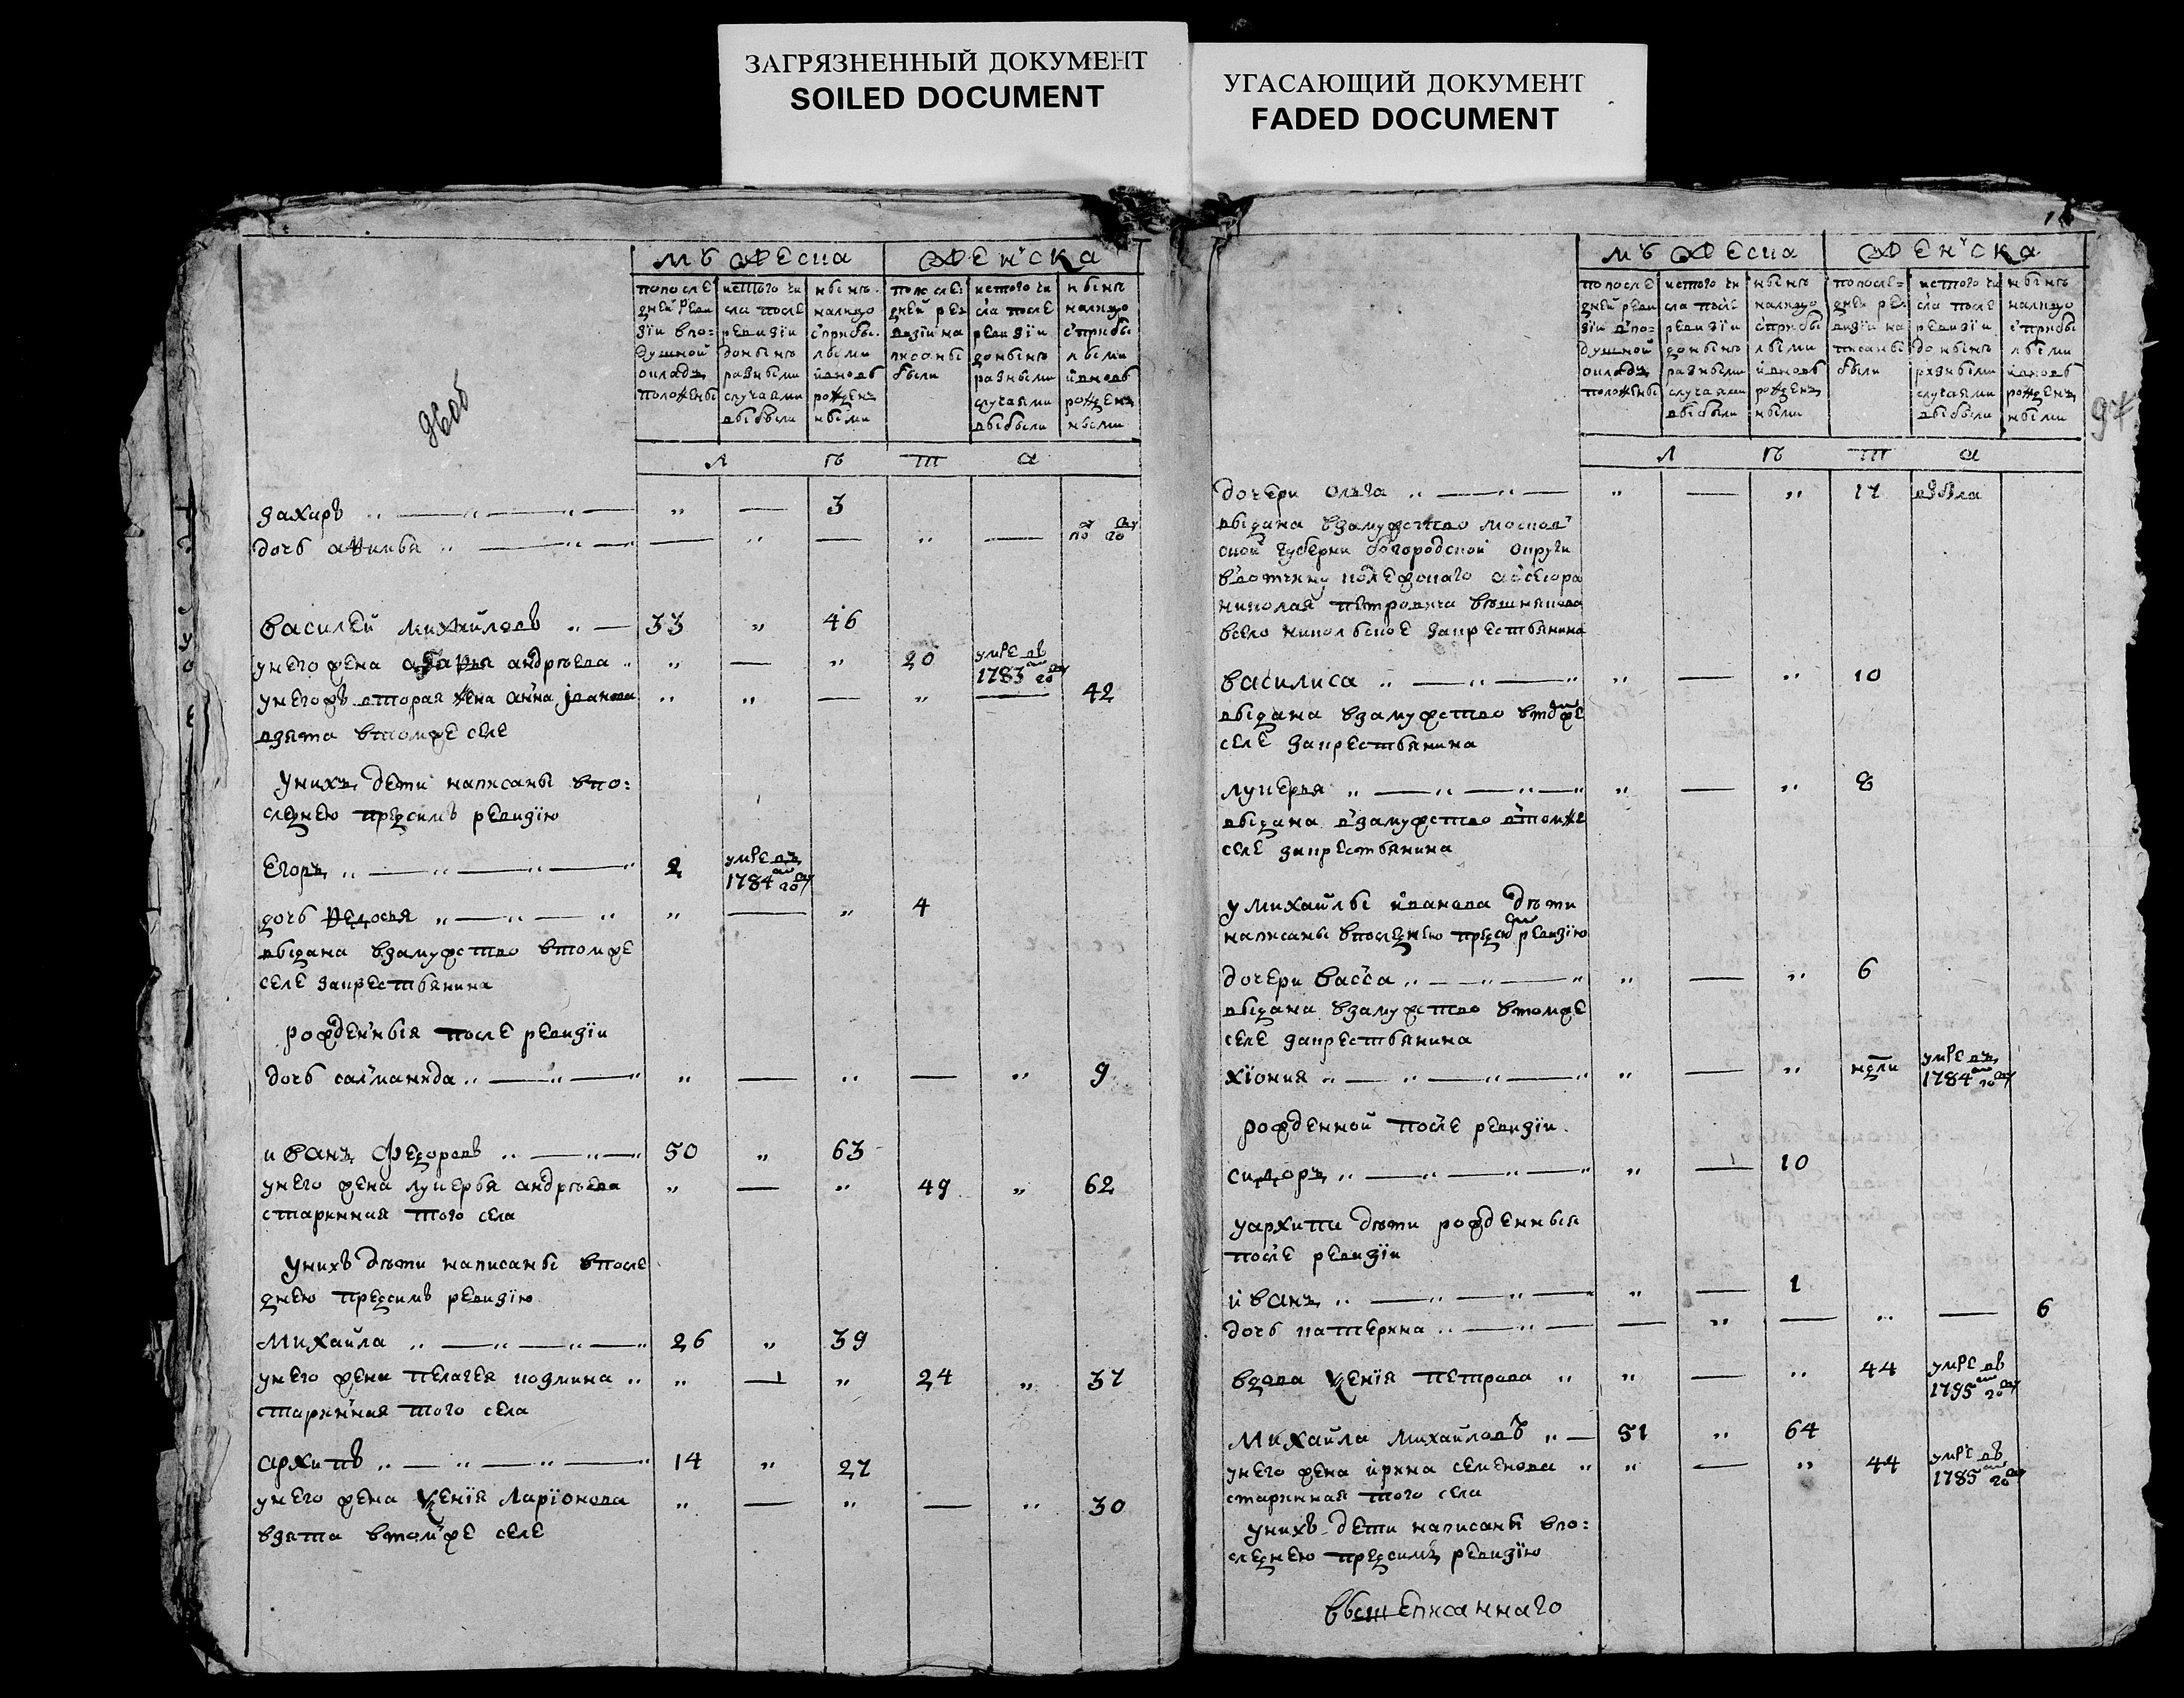 ЗАГРЯЗНЕННЫЙ ДОКУМЕНТ
SOILED DOCUMENT
УГАСАЮЩИЙ ДОКУМЕНТ
FADED DOCUMENT
96об
мꙋжеска женска
попоследней ревизіи вподушной окладъ положены
истого числа после ревизіи доныне разными случаями выбыли
ныне налицо сприбылыми ивновь рожденными
попоследней ревизіи написаны были
истого числа после ревизіи доныне разными случаями выбыли
ныне налицо сприбылыми ивновь рожденными
л ѣ т а
захаръ „ — „ — „ — „ — 3
дочь акилина „ — „ — — „ — „ — по го
василей михайловъ „ — 33 „ 46
унего жена андрѣева „ „ — „ 20 умре въ 1783м году
унегожъ вторая жена анна іванова „ „ — „ — 42
взята втомже селе
унихъ дети написаны впо=
следнею предсимъ ревизію
егоръ „ — „ — „ — „ 2 умре въ 1784м году
дочь федосья „ — „ — „ „ — „ 4
выдана взамужство втомже
селе закрестьянина
рожденныя после ревизіи
дочь саламанида „ — „ — „ „ — „ — „ 9
иванъ федоровъ „ — „ — „ 50 „ 63
унего жена лукерья андрѣева „ — „ 49 „ 62
старинная того села
унихъ дѣти написаны впосле
днею предсимъ ревизію
михайла „ — „ — „ — „ 26 „ 39
унего жена пелагея козмина „ „ — „ 24 „ 37
старинная того села
архипъ „ — „ — „ — „ 14 „ 27
унего жена ксенія ларіонова „ — „ — „ 30
взята втомже селе
97
мꙋжеска женска
попоследней ревизіи вподушной окладъ положены
истого числа после ревизіи доныне разными случаями выбыли
ныне налицо сприбылыми ивновь рожденными
попоследней ревизіи написаны были
истого числа после ревизіи доныне разными случаями выбыли
ныне налицо сприбылыми ивновь рожденными
л ѣ т а
дочери ольга „ — „ — „ — „ 17
выдана взамужство москов
ской губерни богородской округи
вотчину колежскаго асесора
николая петровича вѣшнякова
всело никольское закрестьянина
василиса „ — „ — „ „ — „ 10
выдана взамужство втомже
селе закрестьянина
лукерья „ — „ — „ — „ „ — „ 8
выдана взамужство втомже
селе закрестьянина
умихайлы иванова дѣти
написаны впоследнею предсимъ ревизію
дочери васса „ — „ — „ „ — „ 6
выдана взамужство втомже
селе закрестьянина
хіония „ — „ — „ — „ „ — „ ндли умре въ 1784м году
рожденной после ревизіи
сидоръ „ — „ — „ — „ „ — 10
уархипа дѣти рожденныя
после ревизіи
иванъ „ — „ — „ — „ — 1
дочь катерина „ — „ — — „ — „ — 6
вдова ксенія петрова „ „ — „ 44 умре въ 1795м году
михайла михайловъ „ — 51 „ 64
унего жена ирина семенова „ „ — „ 44 умре въ 1785м году
старинная того села
унихъ дети написаны впо=
следнею предсимъ ревизію
вышеписаннаго